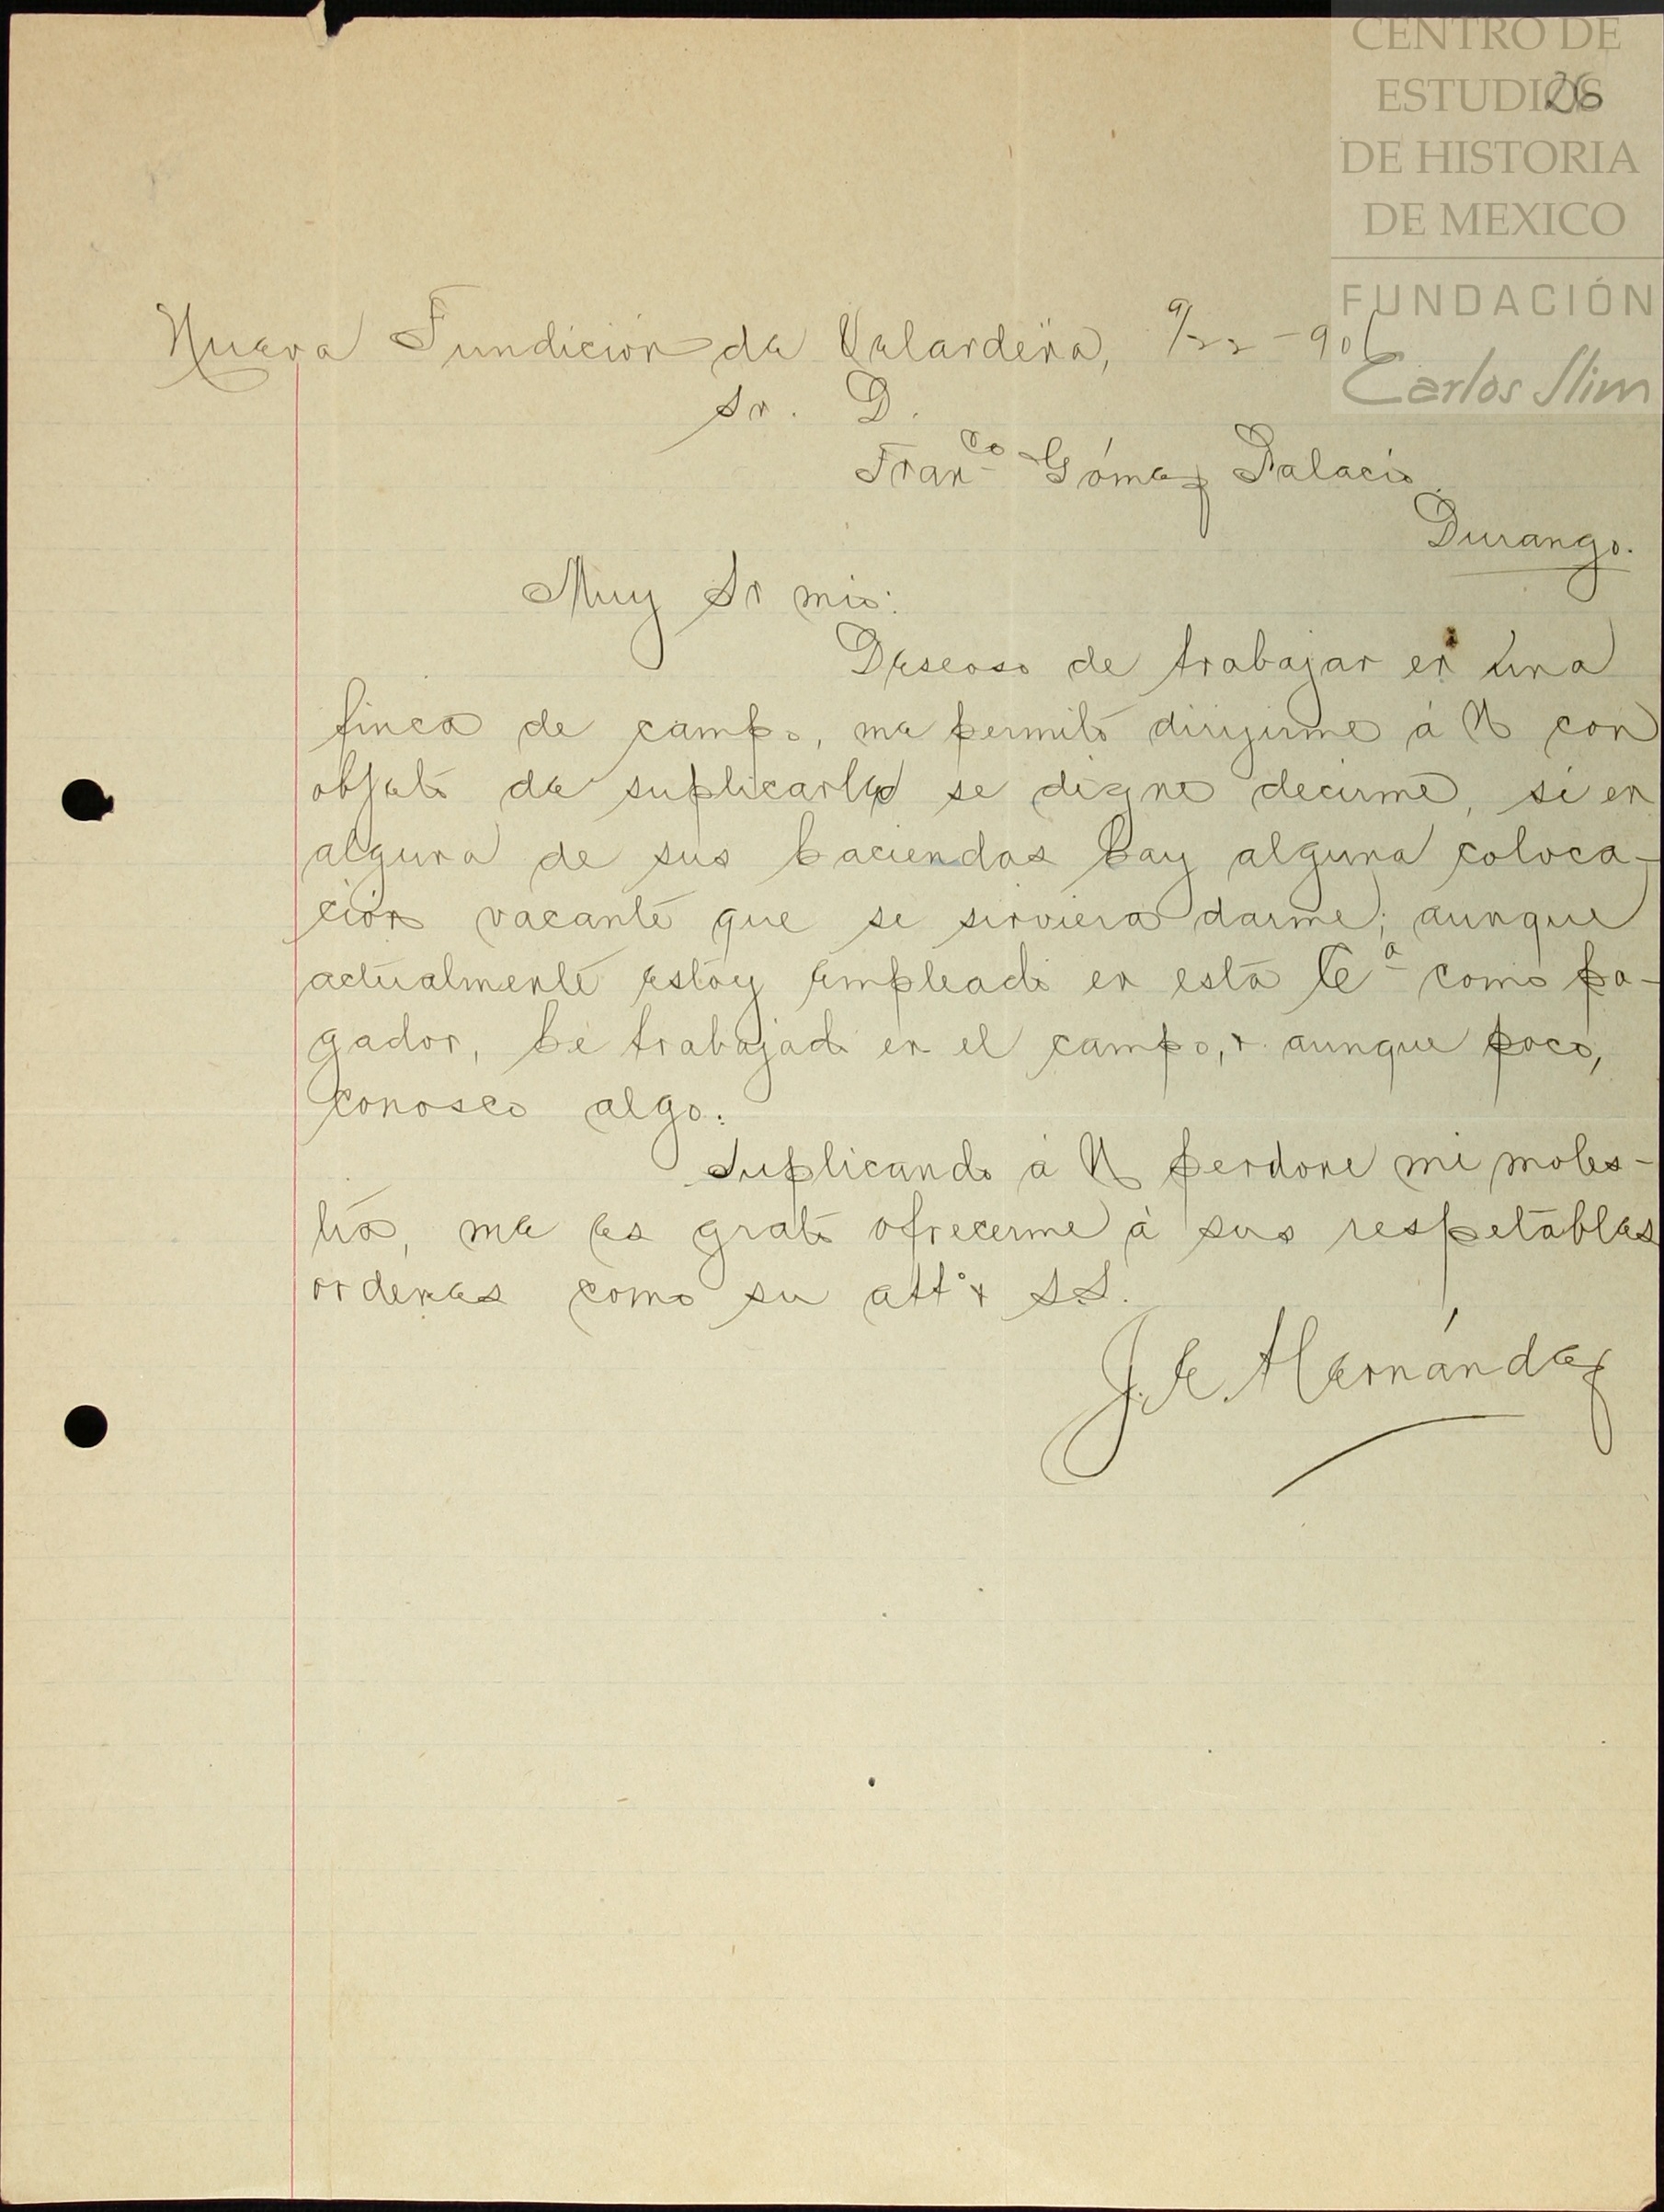 CENTRO DE
ESTUDIOS
26
DE HISTORIA
DE MEXICO
FUNDACIÓN
Carlos Slim
Nueva Fundición de Velardeña, 9/22-901
Sr. D.
Franco Gómez Palacio
Durango.
Muy Sr mio:
Deseoso de trabajar en una
finca de campo, me permito dirijirme á U con
objeto de suplicarle se digne decirme, si en
alguna de sus haciendas hay alguna coloca-
ción vacante que se sirviera darme; aunque
actualmente estoy empleado en esta Ca como pa-
gador, he trabajado en el campo, y aunque poco,
conosco algo.
Suplicando á U perdone mi moles-
tia, me es grato ofrecerme á sus respetables
ordenes como su atto y S.S.
J. E. Hernández